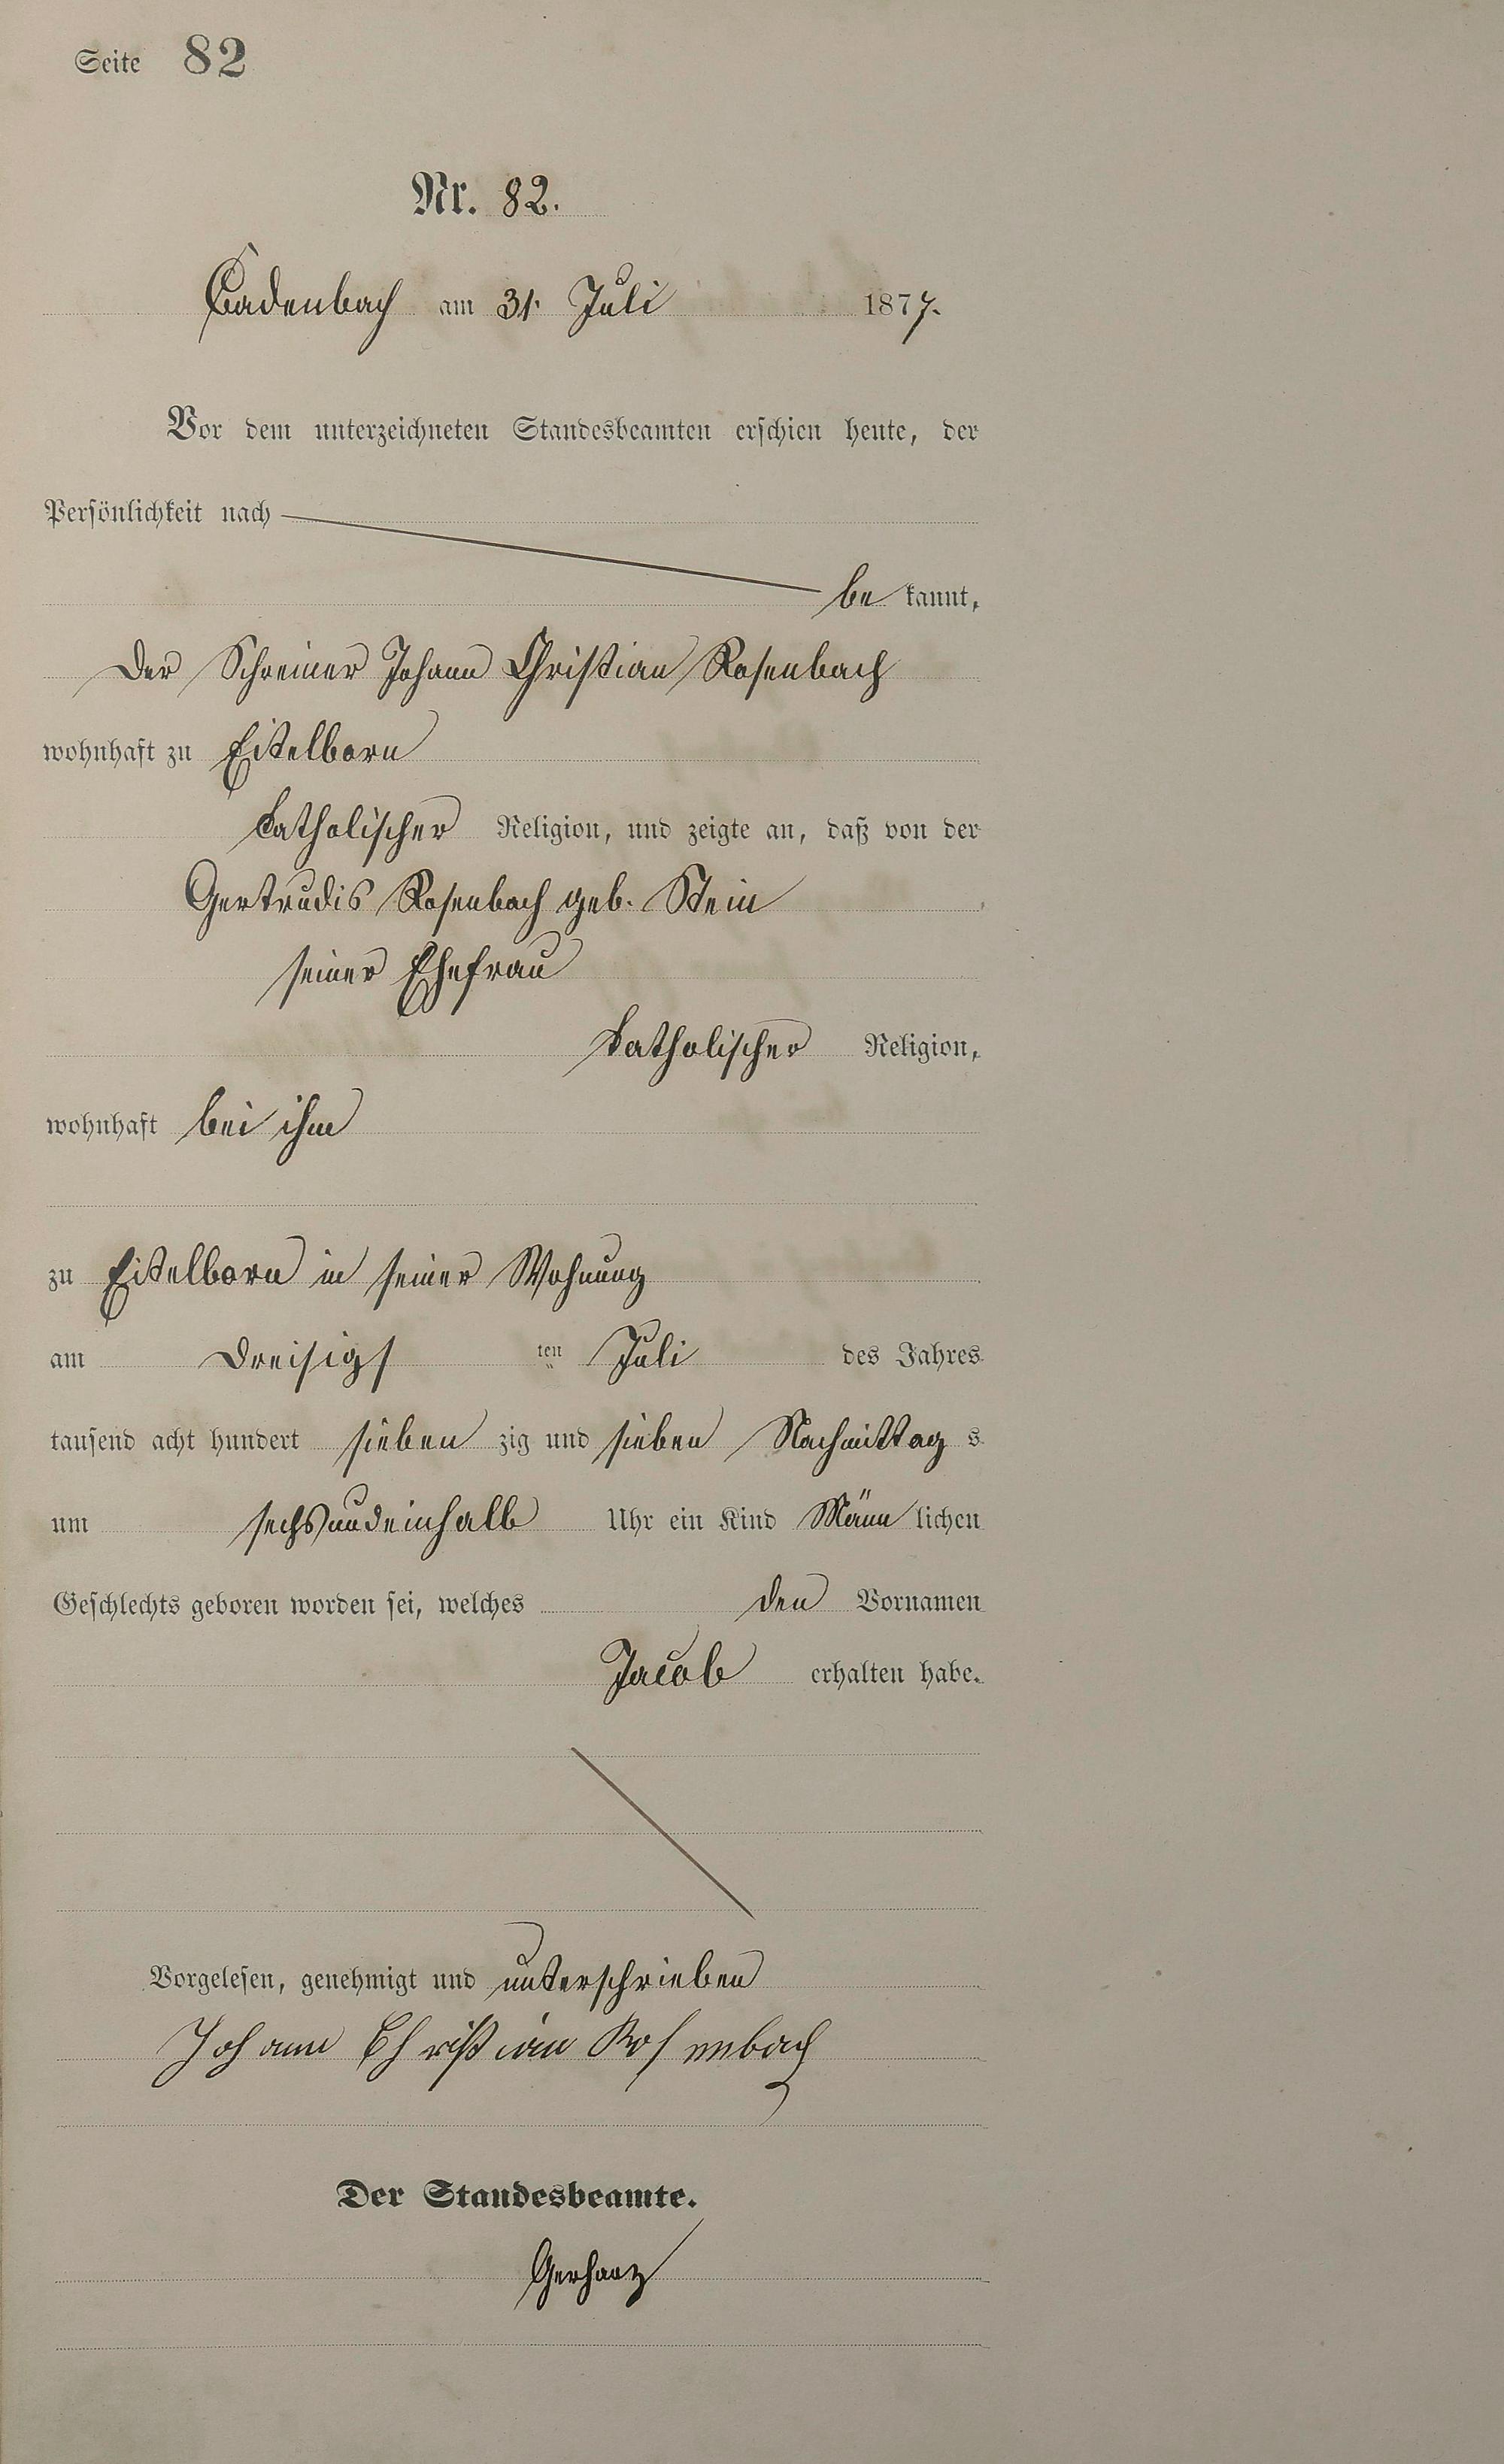 Seite 82
Nr. 82.
Cadenbach am 31. Juli 1877.
Vor dem unterzeichneten Standesbeamten erschien heute, der
Persönlichkeit nach
be kannt,
der Schreiner Johann Christian Rosenbach
wohnhaft zu Eitelborn
katholischer Religion, und zeigte an, daß von der
Gertrudis Rosenbach geb. Stein
seiner Ehefrau
katholischer Religion,
wohnhaft bei ihm
zu Eitelborn in seiner Wohnung
am dreisigs ten Juli des Jahres
tausend acht hundert sieben zig und sieben Nachmittag s
um sechsundeinhalb Uhr ein Kind männ lichen
Geschlechts geboren worden sei, welches den Vornamen
Jacob erhalten habe.
Vorgelesen, genehmigt und unterschrieben
Johann Christian Rosenbach
Der Standesbeamte.
Gerharz